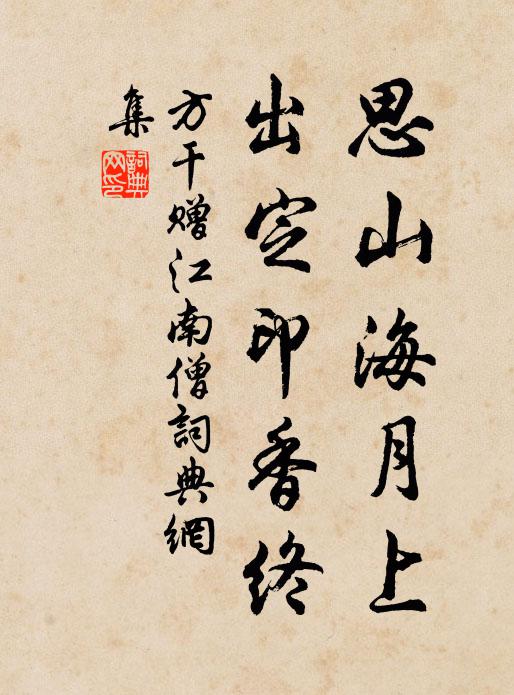 思山海月上
出定印香終
方干贈江南僧詞典網
集
詞典
网印